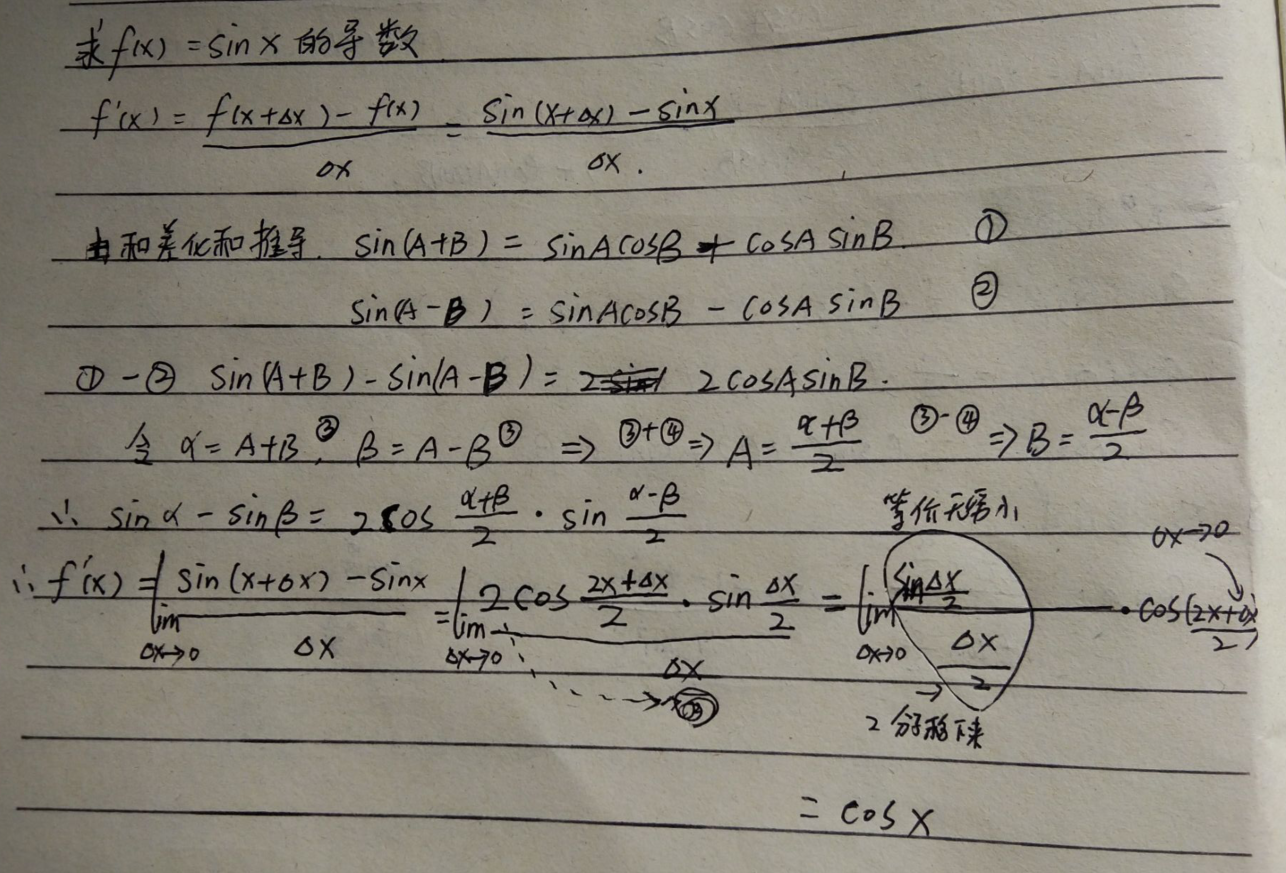 求 f(x) = sin x 的导数
f'(x) = f(x+Δx) - f(x) / Δx = sin(x+Δx) - sinx / Δx.
由和差化和推导. sin(A+B) = sinAcosB + cosA sinB. ①
sin(A-B) = sinAcosB - cosA sinB ②
① - ② sin(A+B) - sin(A-B) = 2cosAsinB.
令 α = A+B ③, β = A-B ③ ⇒ ③+④ ⇒ A = α+β / 2 ③-④ ⇒ B = α-β / 2
∴ sin α - sin β = 2cos α+β / 2 · sin α-β / 2
等价无穷小
Δx→0
∴ f'(x) = lim Δx→0 sin(x+Δx) - sinx / Δx = lim Δx→0 2cos 2x+Δx / 2 · sin Δx / 2 / Δx = lim Δx→0 sin Δx / 2 / Δx / 2 · cos(2x+Δx / 2)
2 分子移下来
= cos x